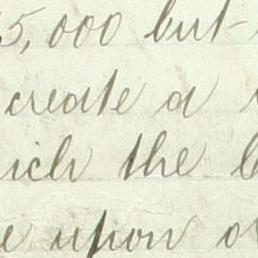 5,000 but
create a
ich the
e upon o